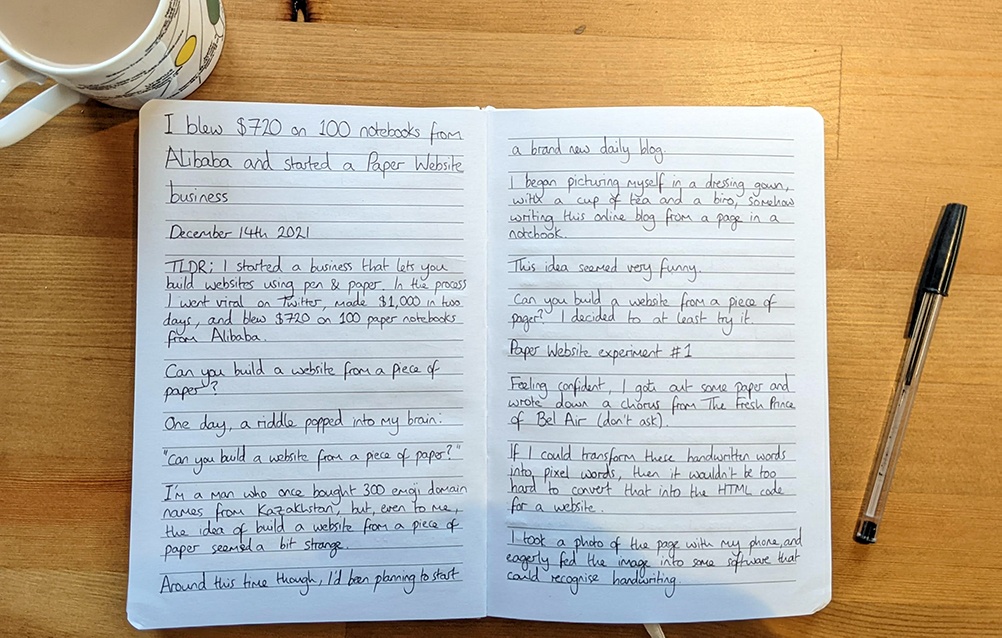 I blew $720 on 100 notebooks from
Alibaba and started a Paper Website
business
December 14th 2021
TLDR; I started a business that lets you
build websites using pen & paper. In the process
I went viral on Twitter, made $1,000 in two
days, and blew $720 on 100 paper notebooks
from Alibaba.
Can you build a website from a piece of
paper?
One day, a riddle popped into my brain:
"Can you build a website from a piece of paper?"
I'm a man who once bought 300 emoji domain
names from Kazakhstan, but, even to me,
the idea of build a website from a piece of
paper seemed a bit strange.
Around this time though, I'd been planning to start
a brand new daily blog.
I began picturing myself in a dressing gown,
with a cup of tea and a biro, somehow
writing this online blog from a page in a
notebook.
This idea seemed very funny.
Can you build a website from a piece of
paper? I decided to at least try it.
Paper Website experiment #1
Feeling confident, I gots out some paper and
wrote down a chorus from The Fresh Prince
of Bel Air (don't ask).
If I could transform these handwritten words
into pixel words, then it wouldn't be too
hard to convert that into the HTML code
for a website.
I took a photo of the page with my phone, and
eagerly fed the image into some software that
could recognise handwriting